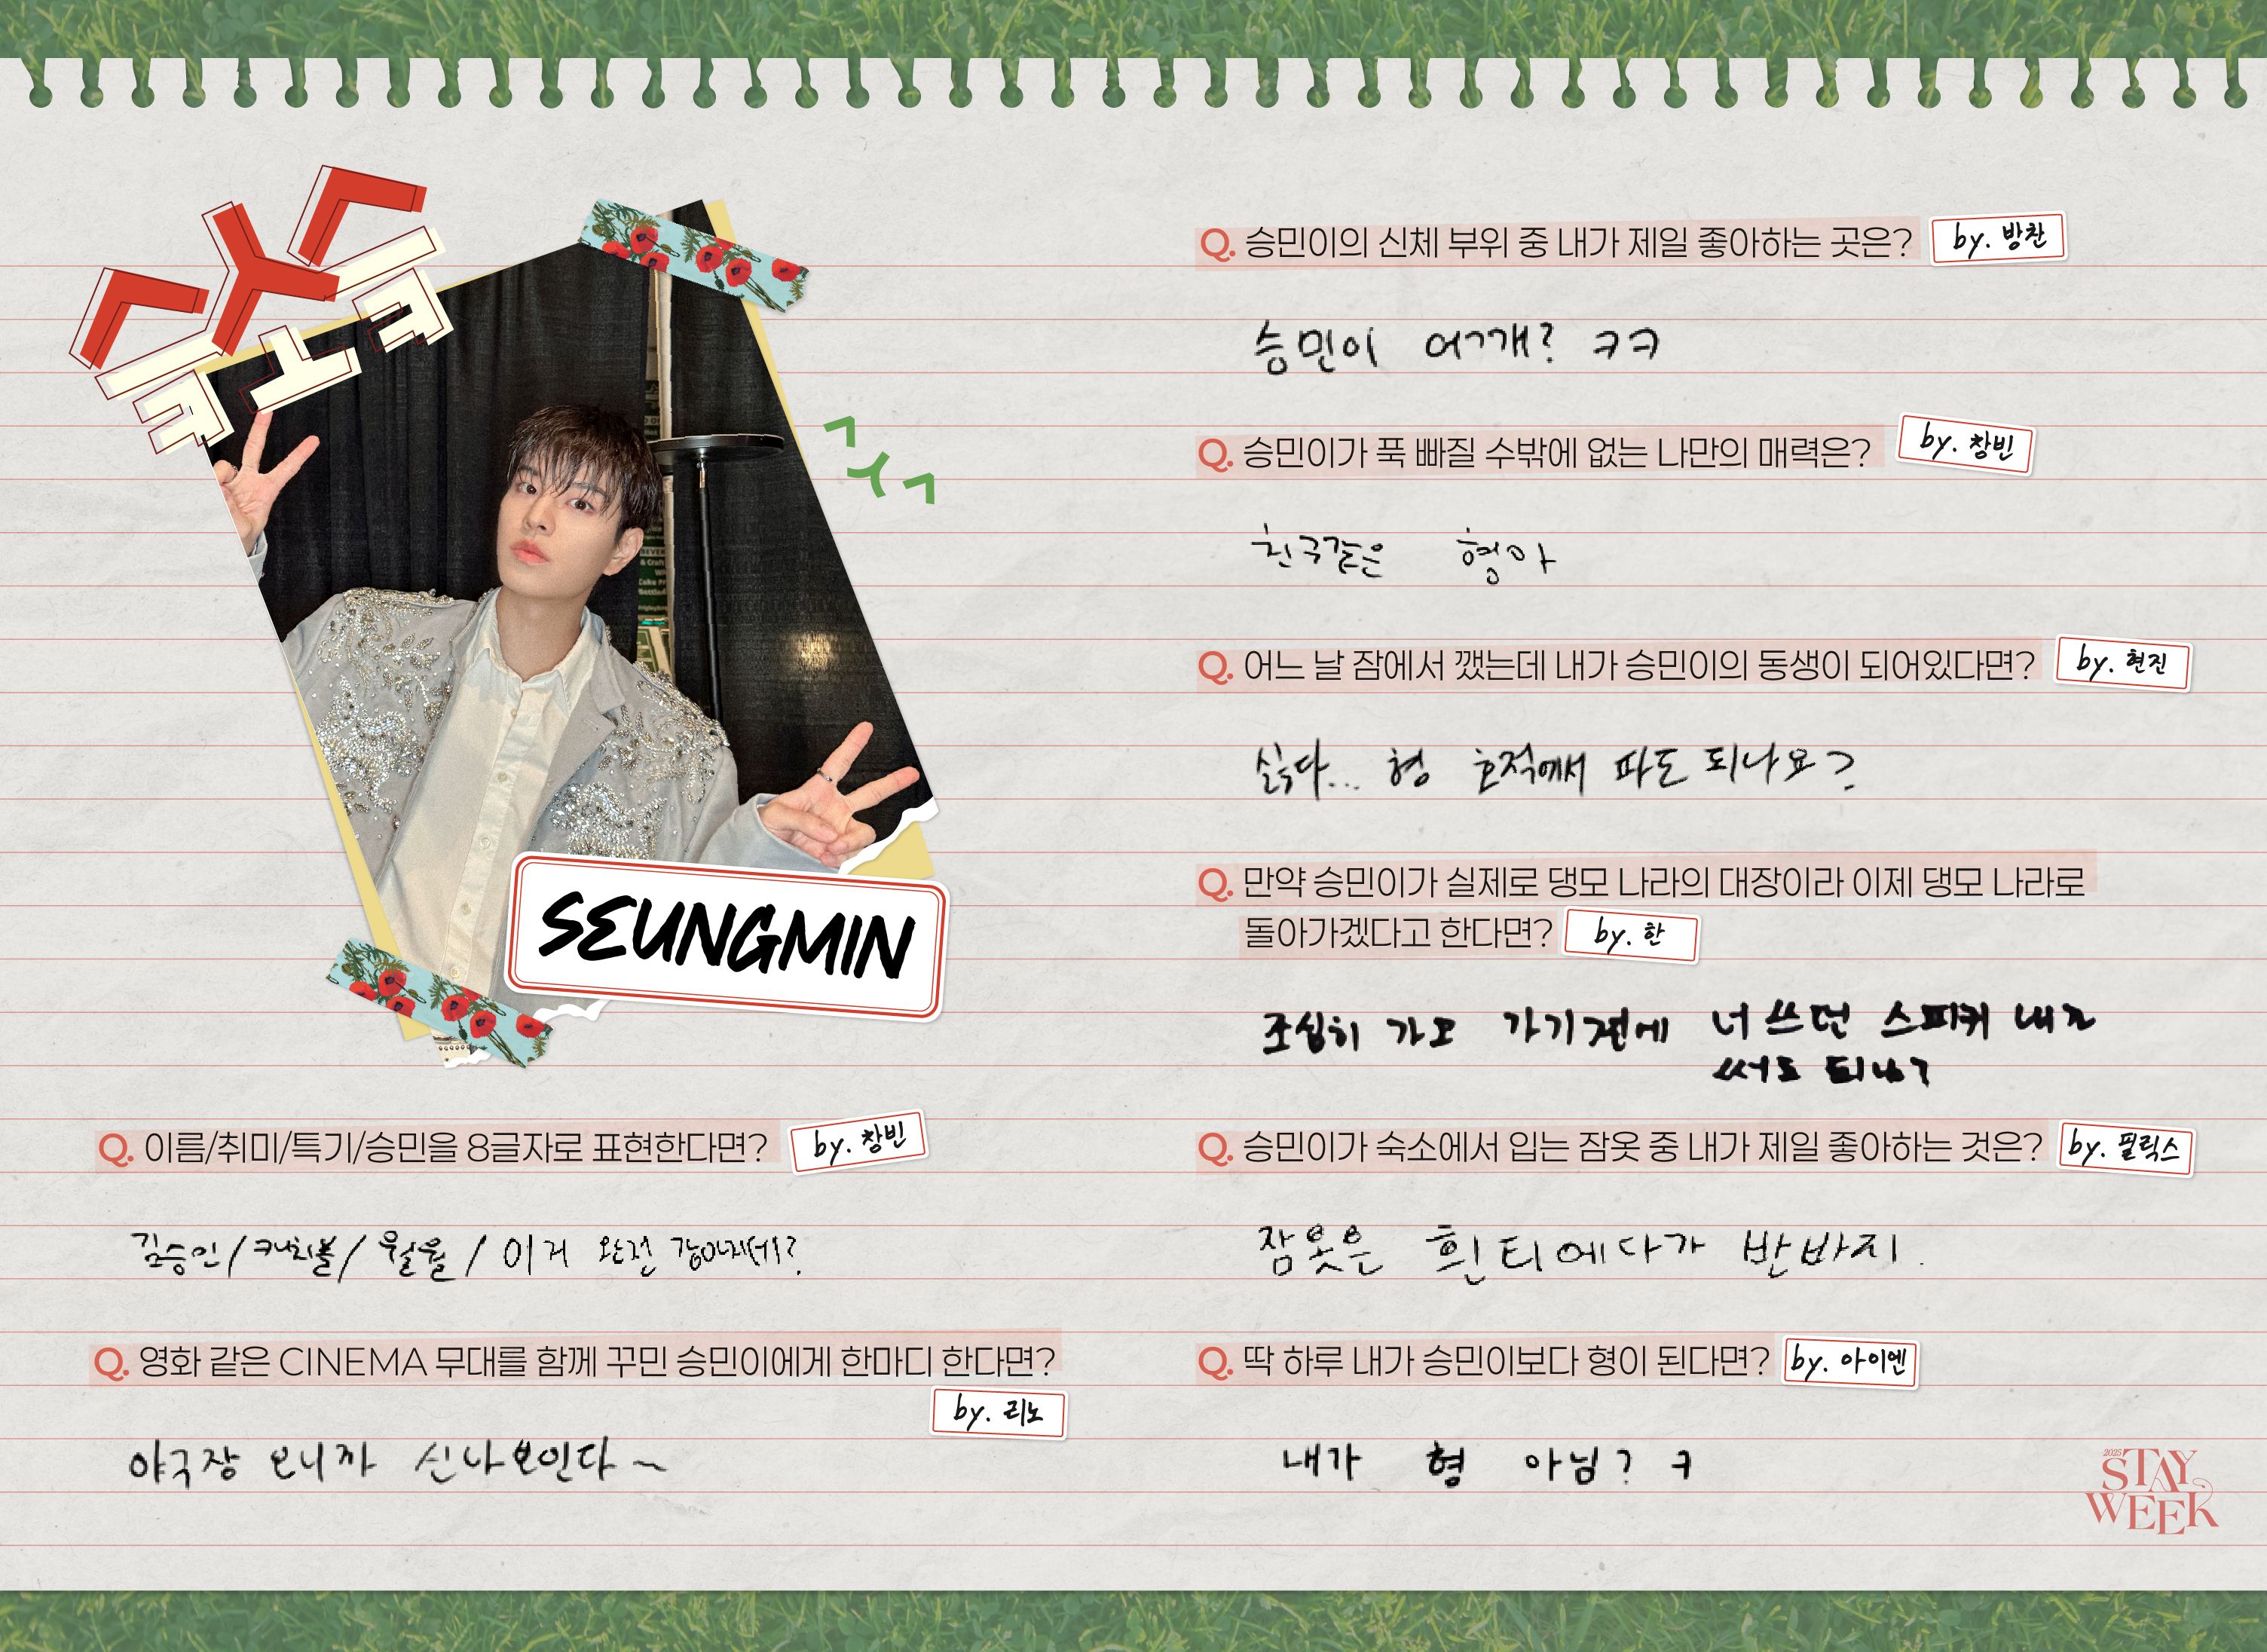 SEUNGMIN
Q. 이름/취미/특기/승민을 8글자로 표현한다면?
by. 창빈
김승민/캐치볼/월월/이거 완전 강아지네?
Q. 영화 같은 CINEMA 무대를 함께 꾸민 승민이에게 한마디 한다면?
by. 리노
야구장 오니까 신나보인다~
Q. 승민이의 신체 부위 중 내가 제일 좋아하는 곳은?
by. 방찬
승민이 어깨? ㅋㅋ
Q. 승민이가 푹 빠질 수밖에 없는 나만의 매력은?
by. 창빈
친구같은 형아
Q. 어느 날 잠에서 깼는데 내가 승민이의 동생이 되어있다면?
by. 현진
싫다... 형 호적에서 파도 되나요?
Q. 만약 승민이가 실제로 댕모 나라의 대장이라 이제 댕모 나라로
돌아가겠다고 한다면?
by. 한
조심히 가고 가기전에 너 쓰던 스피커 내가
써도 되냐?
Q. 승민이가 숙소에서 입는 잠옷 중 내가 제일 좋아하는 것은?
by. 필릭스
잠옷은 흰티에다가 반바지.
Q. 딱 하루 내가 승민이보다 형이 된다면?
by. 아이엔
내가 형 아님? ㅋ
2025
STAY
WEEK